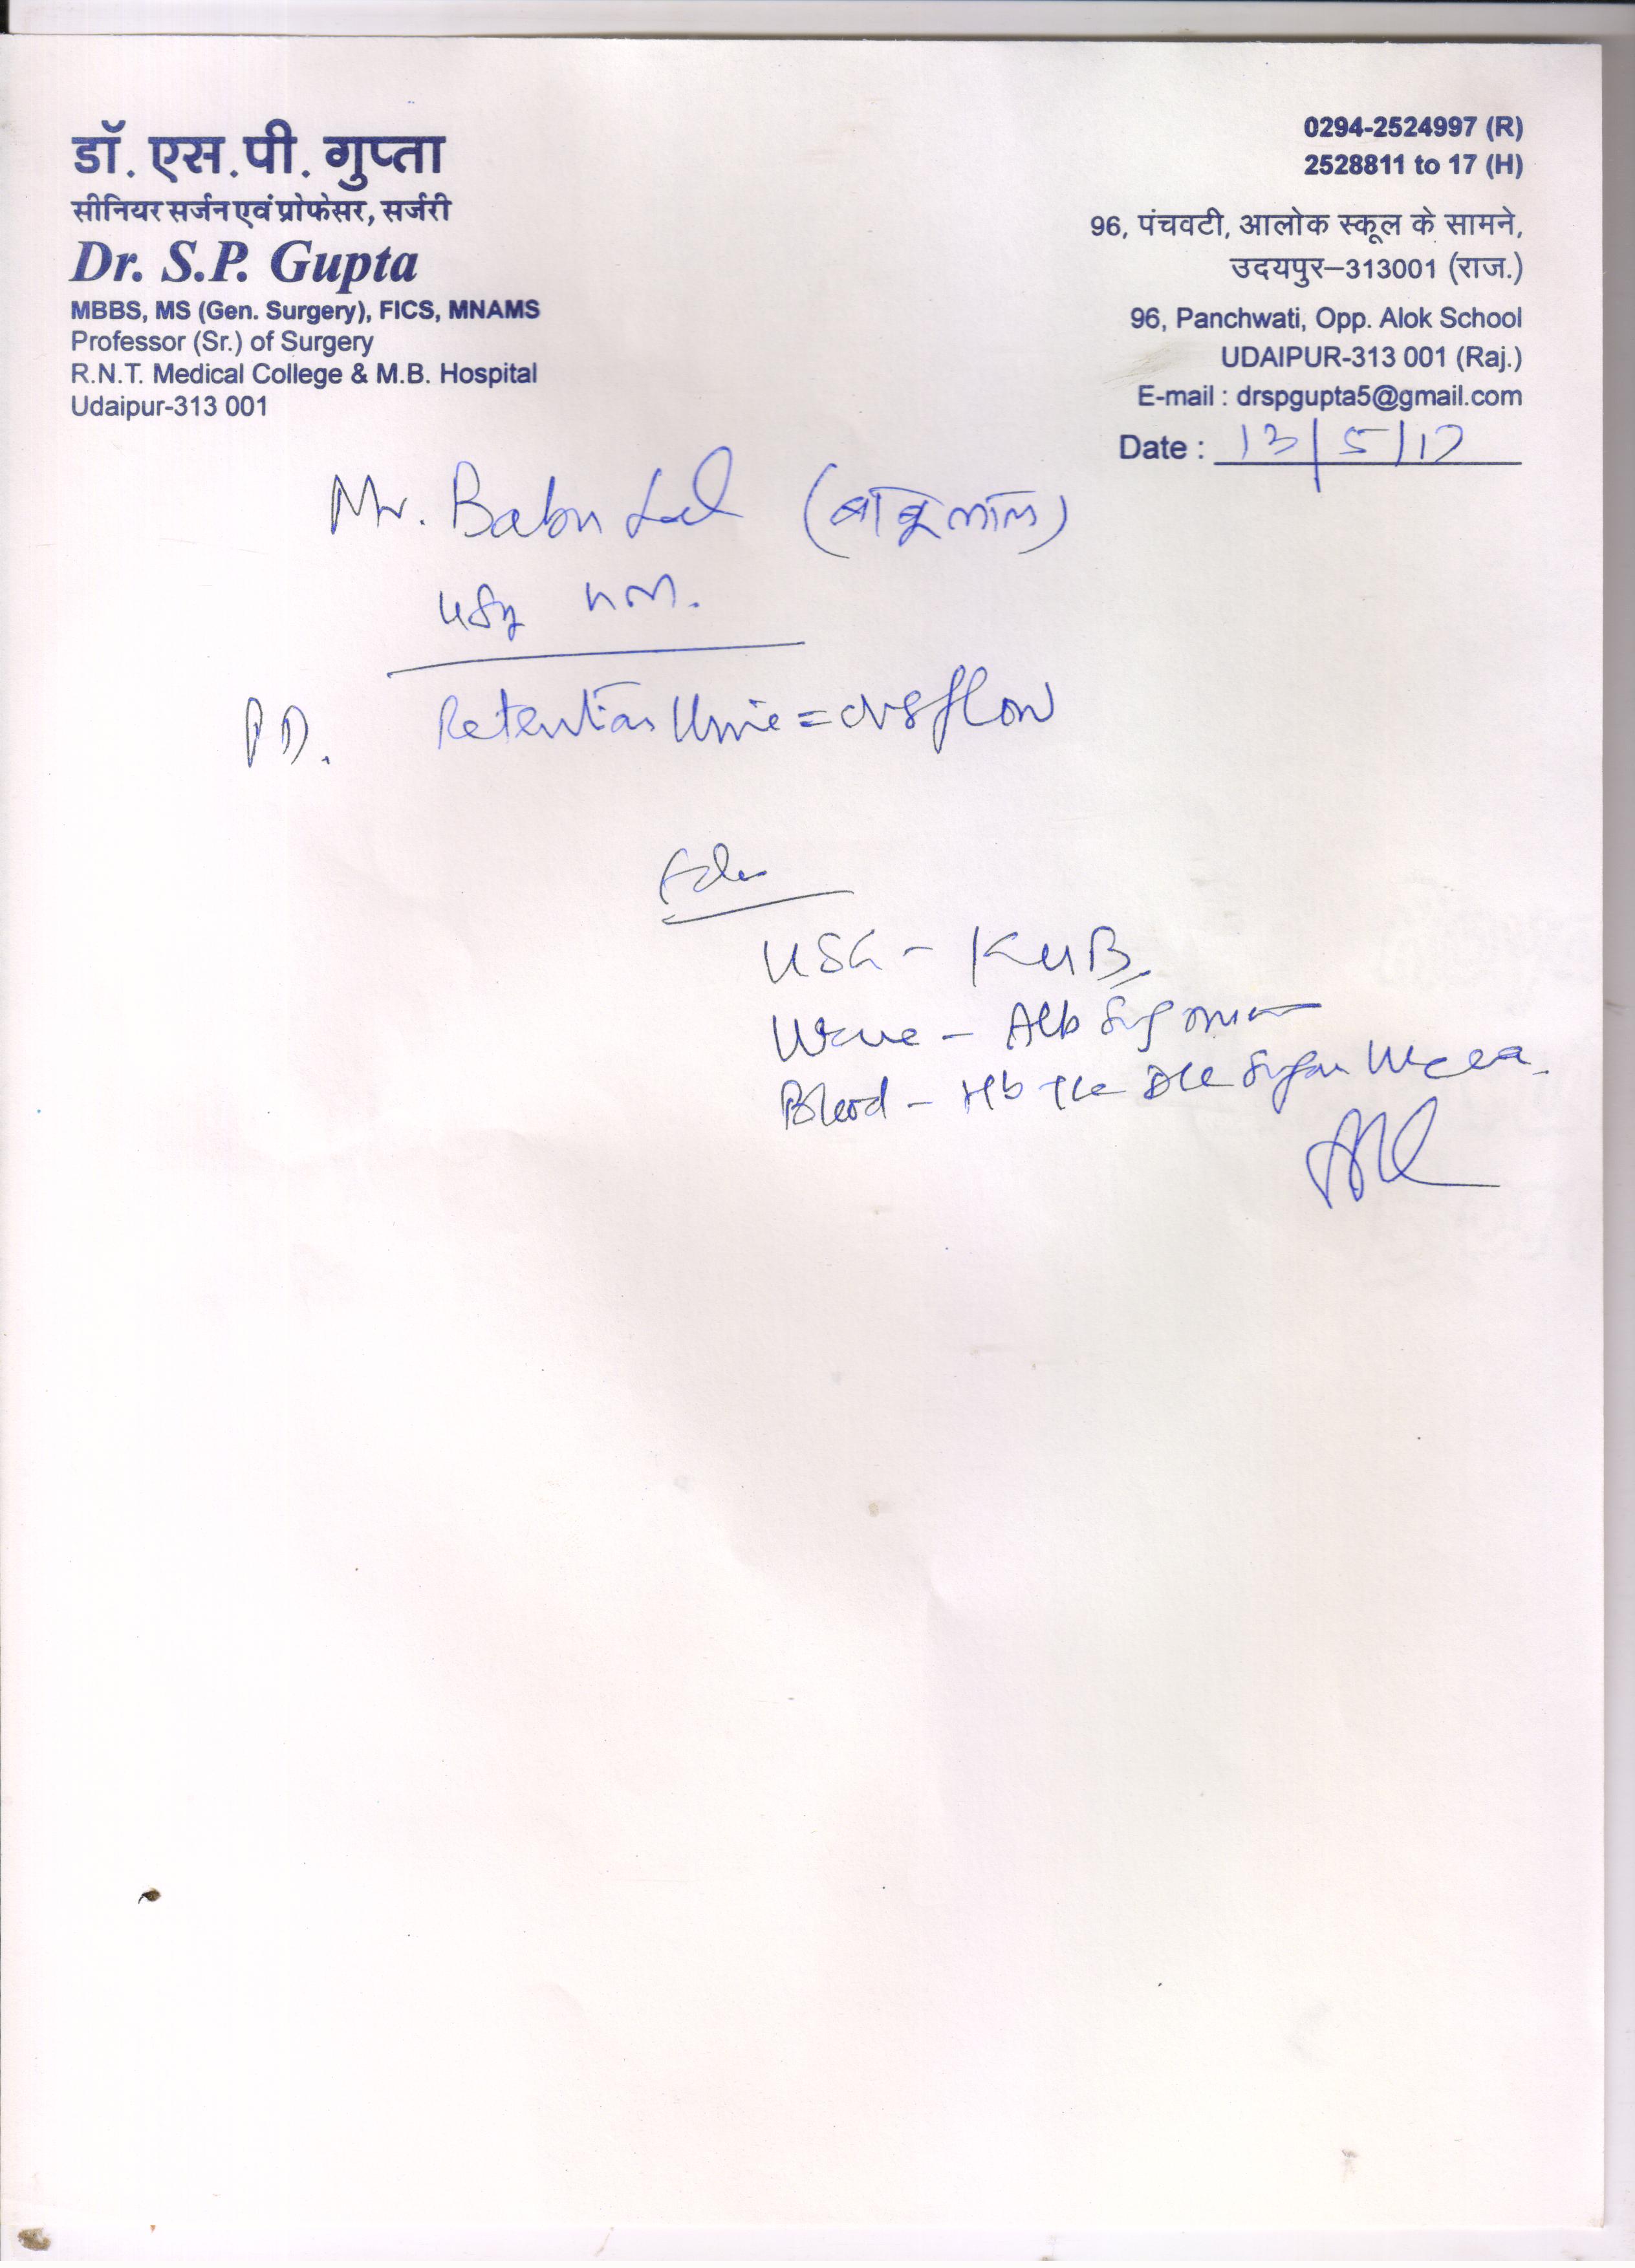 डॉ. एस.पी. गुप्ता
सीनियर सर्जन एवं प्रोफेसर, सर्जरी
Dr. S.P. Gupta
MBBS, MS (Gen. Surgery), FICS, MNAMS
Professor (Sr.) of Surgery
R.N.T. Medical College & M.B. Hospital
Udaipur-313 001
0294-2524997 (R)
2528811 to 17 (H)
96, पंचवटी, आलोक स्कूल के सामने,
उदयपुर–313001 (राज.)
96, Panchwati, Opp. Alok School
UDAIPUR-313 001 (Raj.)
E-mail : drspgupta5@gmail.com
Date : 13/5/17
Mr. Babu Lal (बाबूलाल)
PD. Retention Urine = overflow
Adv
USG - KUB.
Urine - Alb Sug
Blood - Hb TLC DLC Sugar Urea.